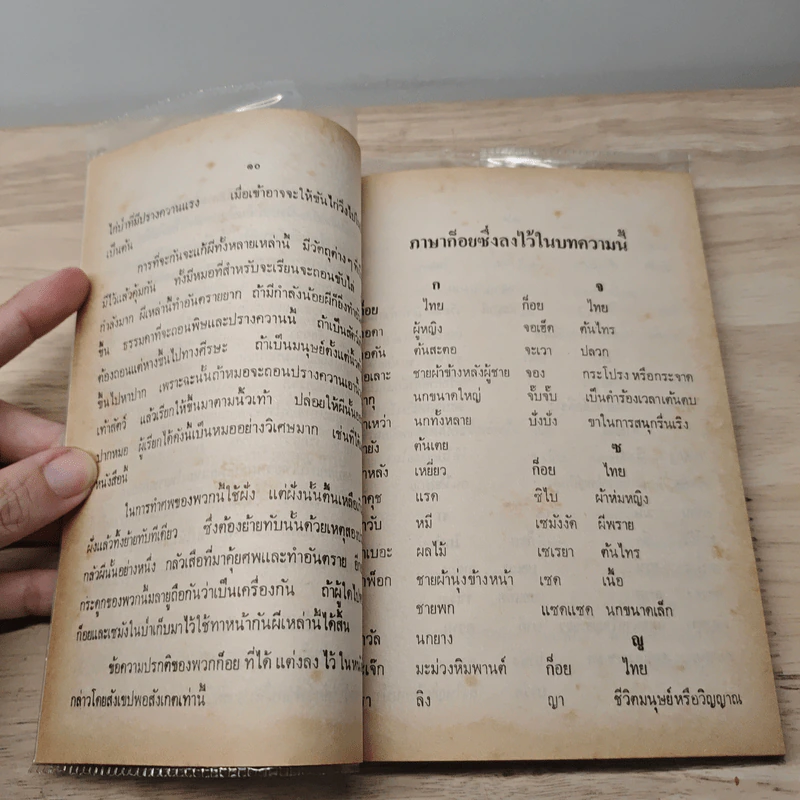 ๑๐
ไก่ป่าที่มีปรางความแรง เมื่อเข้าอาจจะให้ขันไก่วิ่ง
เป็นต้น
การที่จะกันจะแก้ผีทั้งหลายเหล่านี้ มีวัตถุต่างๆ
มีไว้แล้วคุ้มกัน ทั้งมีหมอที่สำหรับจะเรียนจะถอนขับไล่
กำลังมาก ผีเหล่านี้ทำอันตรายยาก ถ้ามีกำลังน้อยผีก็อึง
ขึ้น ธรรมดาที่จะถอนพิษและปรางความนี้ ถ้าเป็น
ต้องถอนแต่หางขึ้นไปทางศีรษะ ถ้าเป็นมนุษย์ตั้งแต่
ขึ้นไปหาปาก เพราะฉะนั้นถ้าหมอจะถอนปรางความ
เท้าสัตว์ แล้วเรียกให้ขึ้นมาตามนิ้วเท้า ปล่อยให้ผีนั้น
ปากหมอ ผู้เรียกได้ดังนี้เป็นหมออย่างวิเศษมาก เช่นที่
หนังสือนี้
ในการทำศพของพวกนี้ใช้ฝัง แต่ฝังนั้นตื้นเหลือ
ฝังแล้วทิ้งย้ายทับทีเดียว ซึ่งต้องย้ายทับนั้นด้วยเหตุสอง
กลัวผีนั้นอย่างหนึ่ง กลัวเสือที่มาคุ้ยศพและทำอันตราย
กระดูกของพวกนี้มลายูถือกันว่าเป็นเครื่องกัน ถ้าผู้ใดไป
ก็อยและเซมังในป่าเก็บมาไว้ใช้ทาหน้ากันผีเหล่านี้ได้สิ้น
ข้อความปรกติของพวกก็อย ที่ได้ แต่งลง ไว้ ใน
กล่าวโดยสังเขปพอสังเกตเท่านี้
ภาษาก็อยซึ่งลงไว้ในบทความนี้
ก จ
ไทย ก็อย ไทย
ผู้หญิง จอเฮ็ด ต้นไทร
ต้นสะตอ จะเวา ปลวก
ชายผ้าข้างหลังผู้ชาย จอง กระโปรง หรือกระจาด
นกขนาดใหญ่ จั๊บจั๊บ เป็นคำร้องเวลาเต้นตบ
นกทั้งหลาย บั่งบั่ง ขาในการสนุกรื่นเริง
ต้นเตย ซ
เหยี่ยว ก็อย ไทย
แรด ซิไบ ผ้าห่มหญิง
หมี เซมังงัด ผีพราย
ผลไม้ เซเรยา ต้นไทร
ชายผ้านุ่งข้างหน้า เซด เนื้อ
ชายพก แซดแซด นกขนาดเล็ก
นกยาง ญ
มะม่วงหิมพานต์ ก็อย ไทย
ลิง ญา ชีวิตมนุษย์หรือวิญญาณ